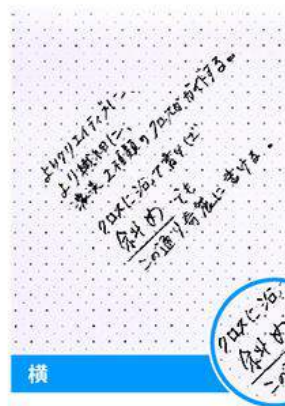 よりクリエイティブに、
より緻密に、
濃淡2種類のクロスがガイドする。
クロスに沿って書けば
斜め でも
この通り奇麗に書ける。
横
クロスに沿っ
斜め
この